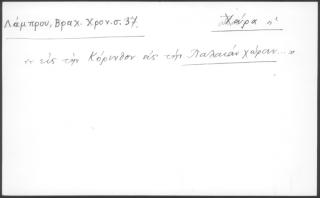 Λάμπρου, Βραχ. Χρον. σ. 37. Χώρα ἡ
« εἰς τὴν Κόρινθον εἰς τὴν Παλαιὰν χώραν... »